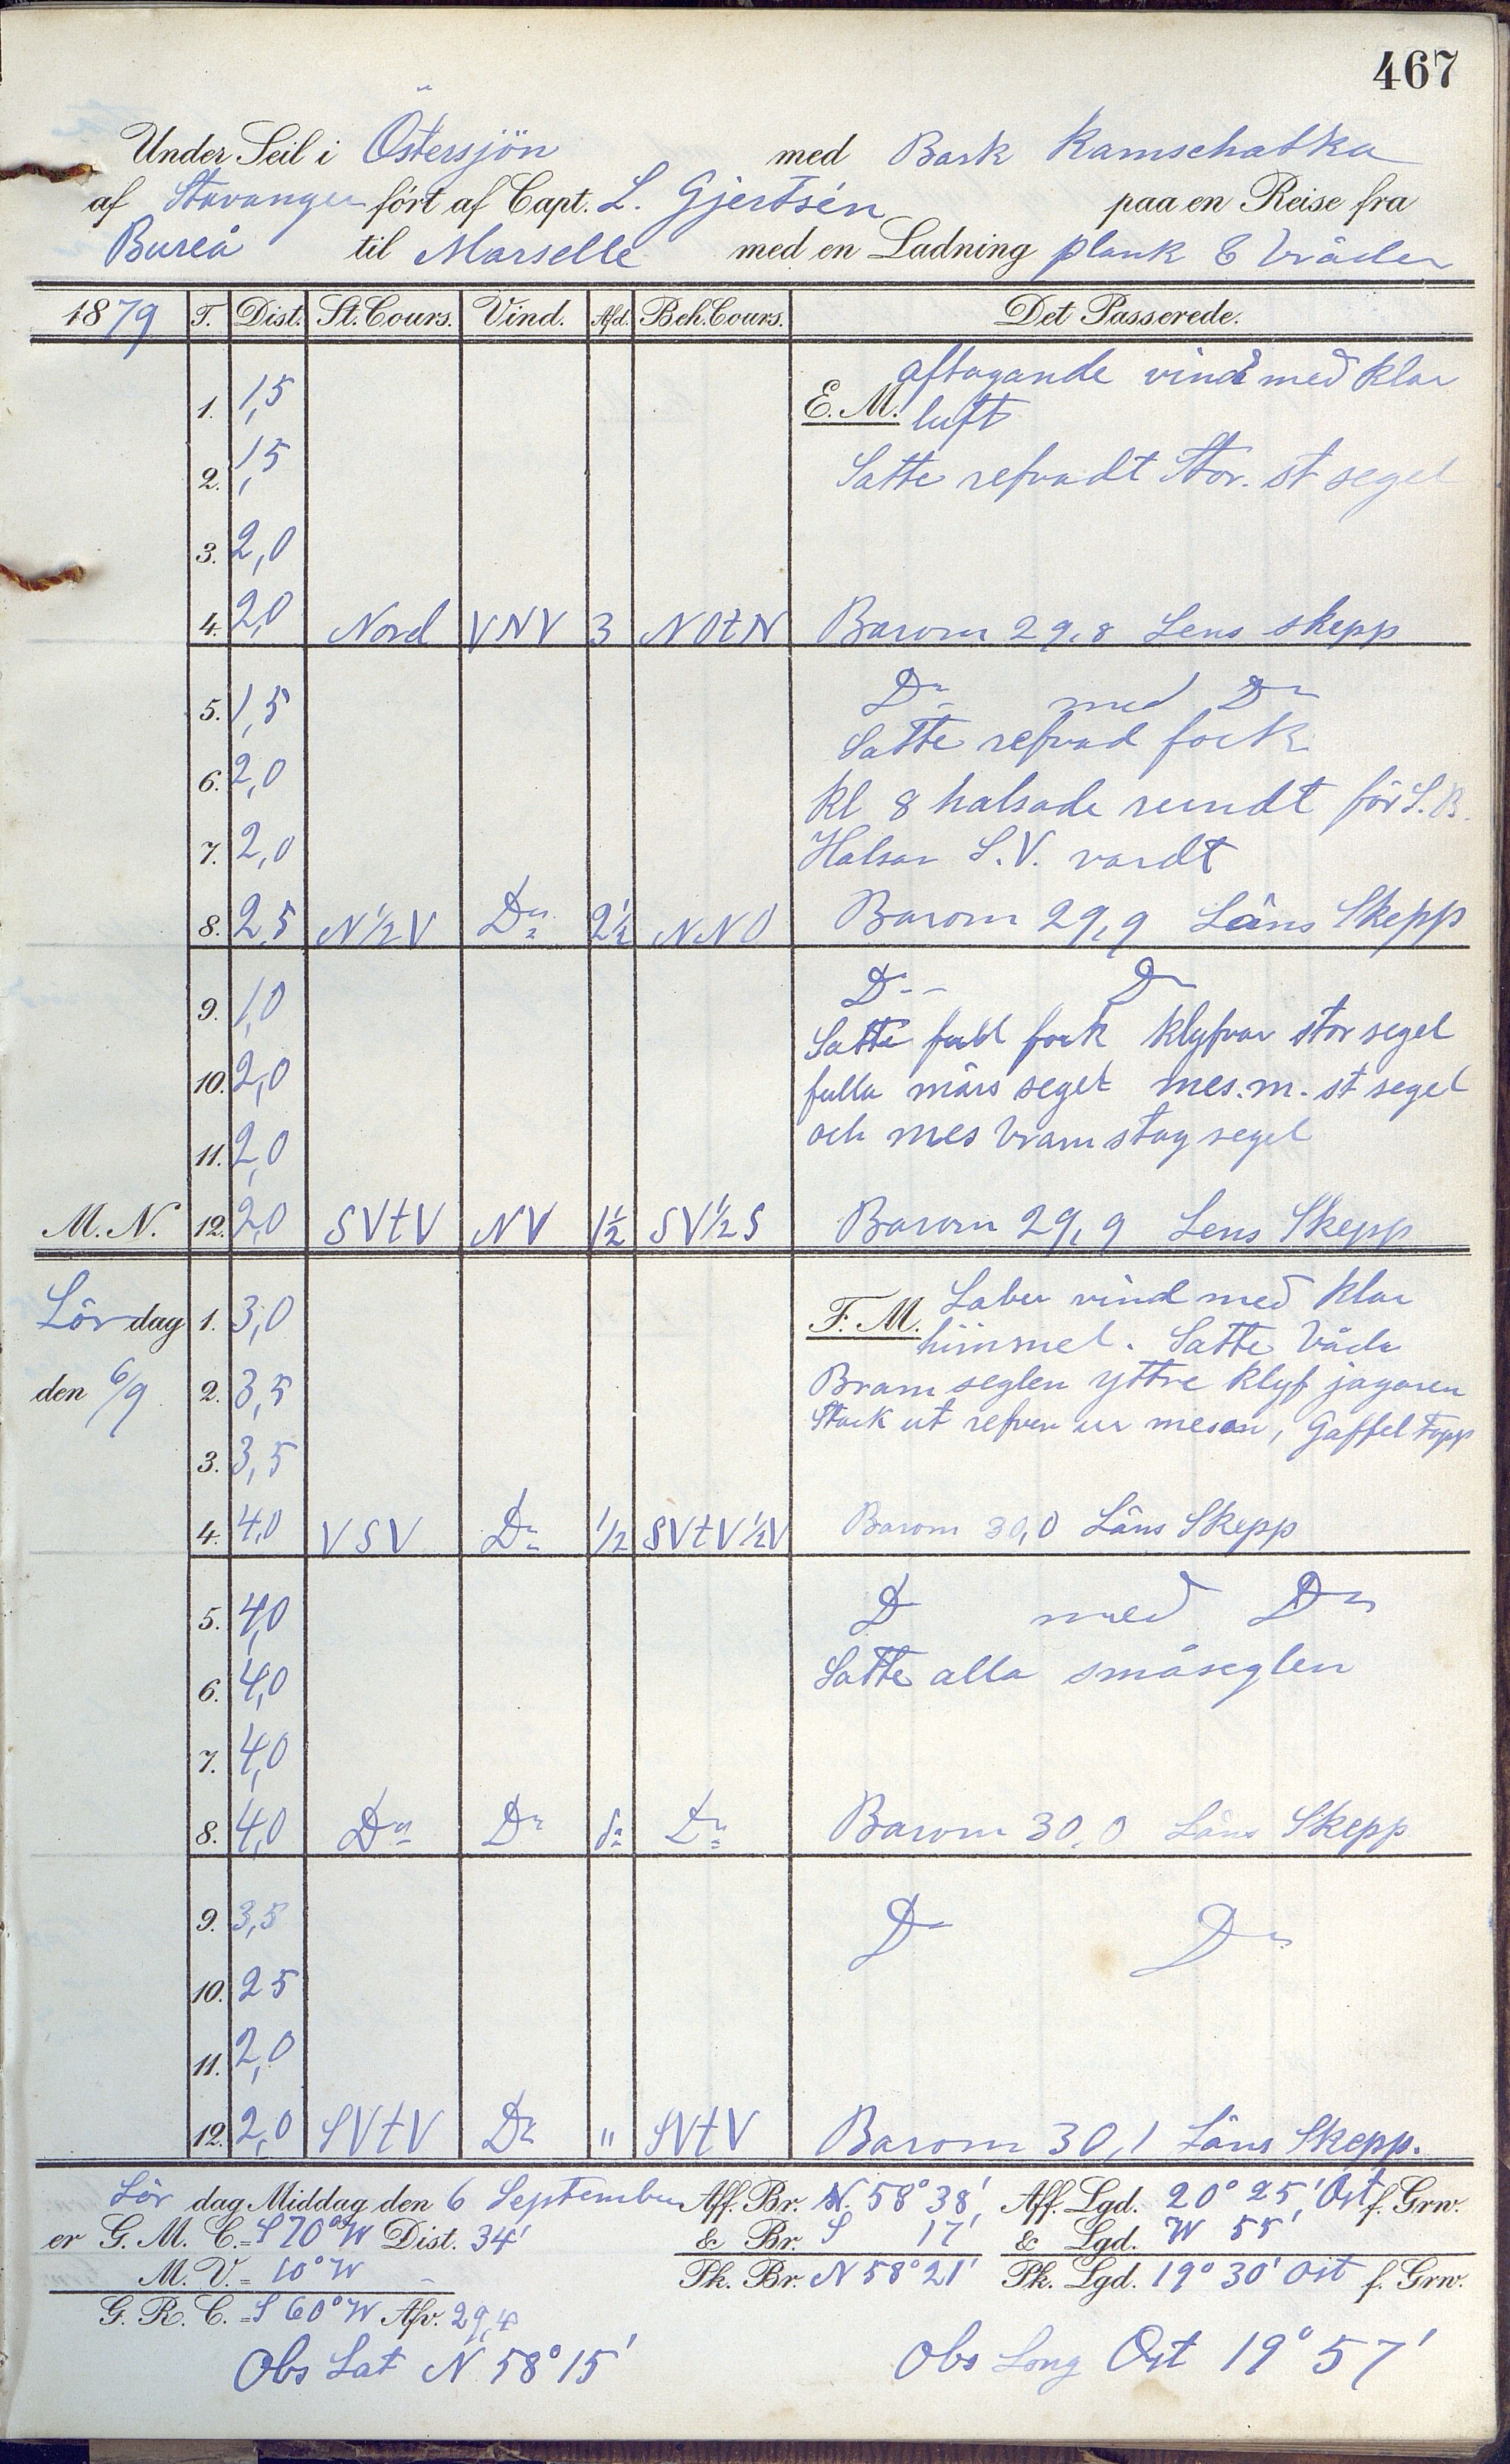 467
Under Seil i Östersjön med Bark Kamschatka
af Stavanger ført af Capt. L. Gjertsén paa en Reise fra
Bureå til Marselle med en Ladning plank & bräder
1879 T. Dist. St. Cours. Vind. Afd. Beh. Cours. Det Passerede.
aftagande vind med klar
1. 1,5 E. M. luft
2. 1,5 Satte refvadt Stor. st segel
3. 2,0
4. 2,0 Nord VNV 3 NOtN Barom 29,8 Lens skepp
5. 1,5 Do med Do
Satte refvad fock
6. 2,0
kl 8 halsade rundt för S. B.
7. 2,0 Halsar S. V. vardt
8. 2,5 N 1/2 V Do 2 1/2 NNO Barom 29,9 Läns Skepp
9. 1,0 Do Do
Satte full fock klyfvar stor segel
10. 2,0 fulla märs segel mes. m. st segel
11. 2,0 och mes bram stag segel
M. N. 12. 2,0 SVtV NV 1 1/2 SV 1/2 S Barom 29,9 Lens Skepp
Lördag 1. 3,0 F. M. Laber vind med klar
himmel. Satte båda
den 6/9 2. 3,5 Bram seglen yttre klyf jagaren
Stack ut refven ur mesan, Gaffel Topp
3. 3,5
4. 4,0 VSV Do 1/2 SVtV 1/2 V Barom 30,0 Läns Skepp
5. 4,0 Do med Do
6. 4,0 Satte alla småseglen
7. 4,0
8. 4,0 Do Do do Do Barom 30,0 Läns Skepp
9. 3,5 Do Do
10. 2 5
11. 2,0
12. 2,0 SVtV Do " SVtV Barom 30,1 Läns Skepp.
Lördag Middag den 6 September Aff. Br. N. 58° 38', Aff. Lgd. 20° 25,' Ost f. Grw.
er G. M. C. = S 70° W Dist. 34' & Br. S 17' & Lgd. W 55'
M. V. = 10° W Pk. Br. N 58° 21' Pk. Lgd. 19° 30' Ost f. Grw.
G. R. C. = S 60° W Afv. 29,4
Obs Lat N 58° 15' Obs Long Ost 19° 57'